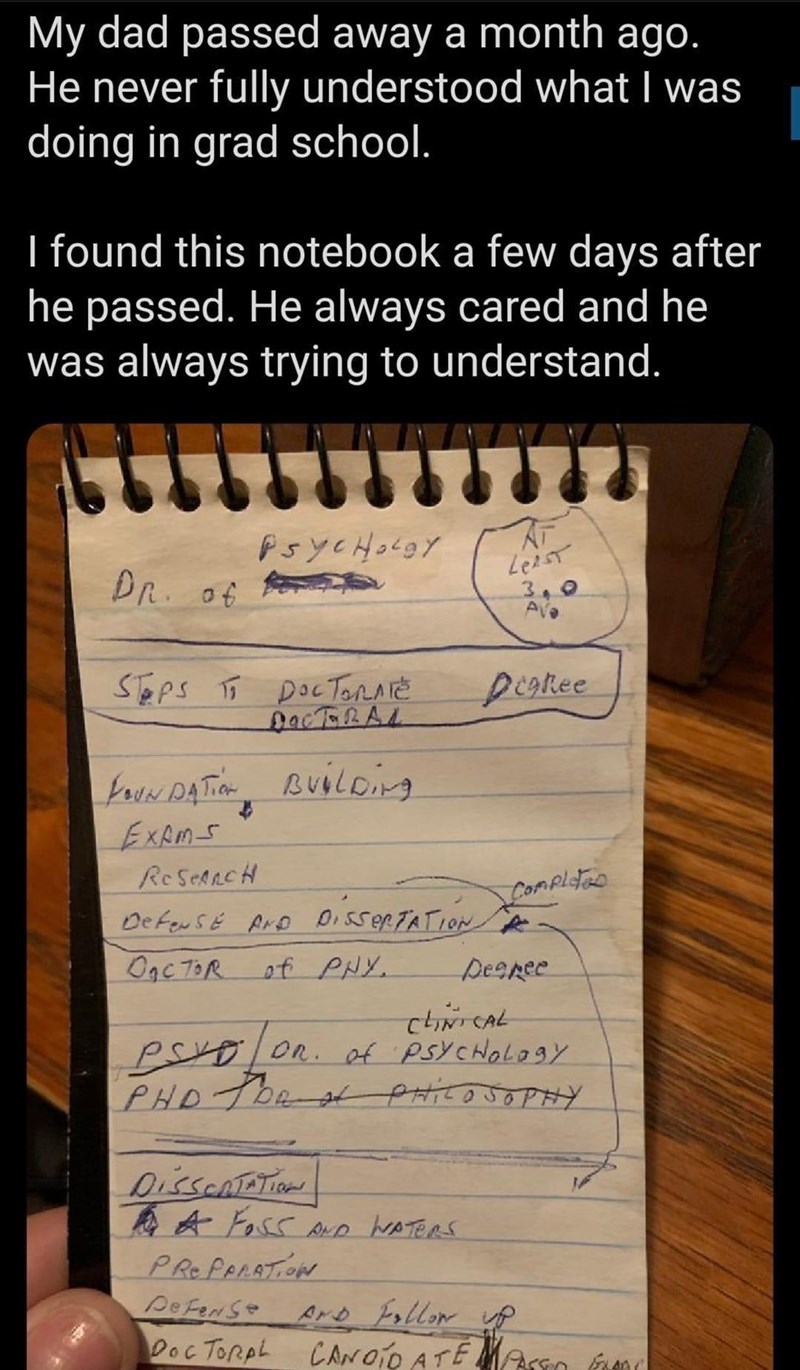 My dad passed away a month ago.
He never fully understood what I was
doing in grad school.
I found this notebook a few days after
he passed. He always cared and he
was always trying to understand.
PSYCHOLGY
DR. of
AT
LEAST
3.0
AV.
STEPS TO DOCTORATE DEGREE
DOCTORAL
FOUNDATION BUILDING
EXAMS
RESEARCH
COMPLETED
DEFENSE AND DISSERTATION
DOCTOR of PHY. DEGREE
CLINICAL
PSYD / DR. of PSYCHOLOGY
PHD DR of PHILOSOPHY
DISSERTATION
FOSS AND WATERS
PREPARATION
DEFENSE AND Follow UP
DOCTORAL CANDIDATE PASSED EXAMS